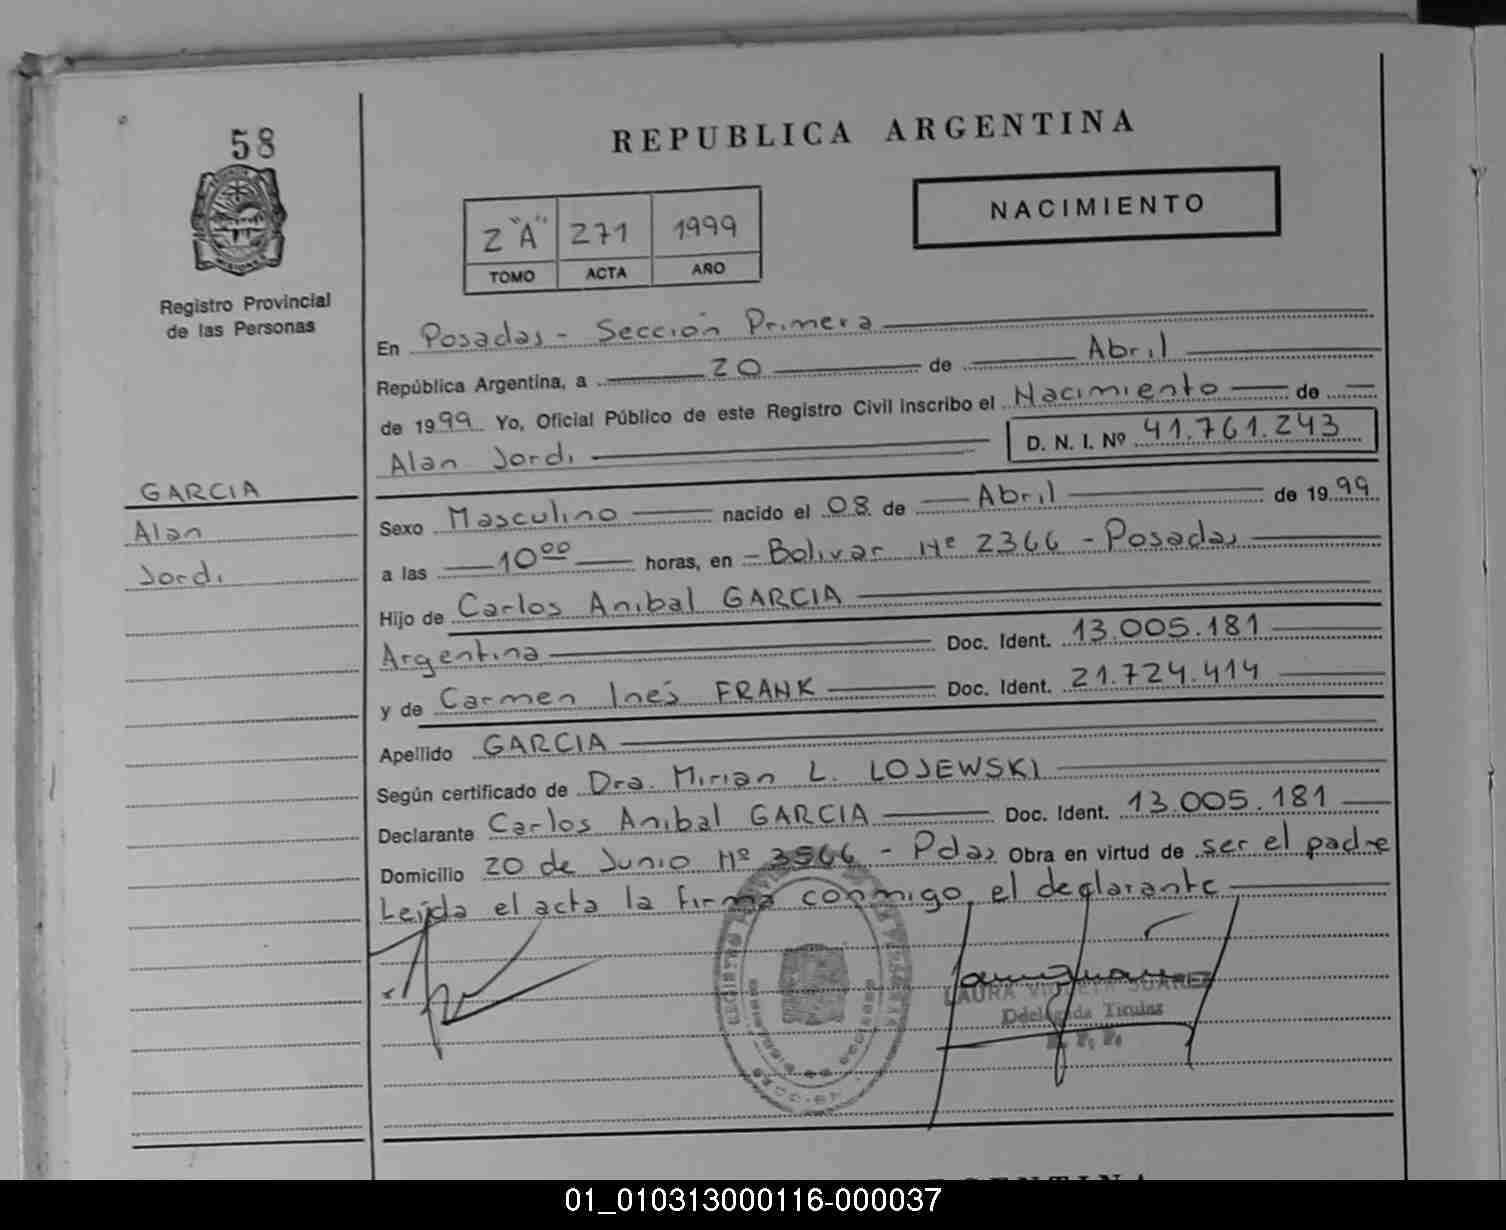 58
REPUBLICA ARGENTINA
NACIMIENTO
2 "A" 271 1999
TOMO ACTA AÑO
Registro Provincial
de las Personas
En Posadas - Sección Primera
República Argentina, a 20 de Abril
de 1999 Yo, Oficial Público de este Registro Civil inscribo el Nacimiento de
Alan Jordi D. N. I. Nº 41.761.243
GARCIA
Alan
Jordi
Sexo Masculino nacido el 08 de Abril de 1999
a las 10⁰⁰ horas, en - Bolivar Nº 2366 - Posadas
Hijo de Carlos Anibal GARCIA
Argentina Doc. Ident. 13.005.181
y de Carmen Inés FRANK Doc. Ident. 21.724.414
Apellido GARCIA
Según certificado de Dra. Mirian L. LOJEWSKI
Declarante Carlos Anibal GARCIA Doc. Ident. 13.005.181
Domicilio 20 de Junio Nº 3566 - Pdas Obra en virtud de ser el padre
Leída el acta la firma conmigo, el declarante
LAURA SUAREZ
Delegada Titular
01_010313000116-000037